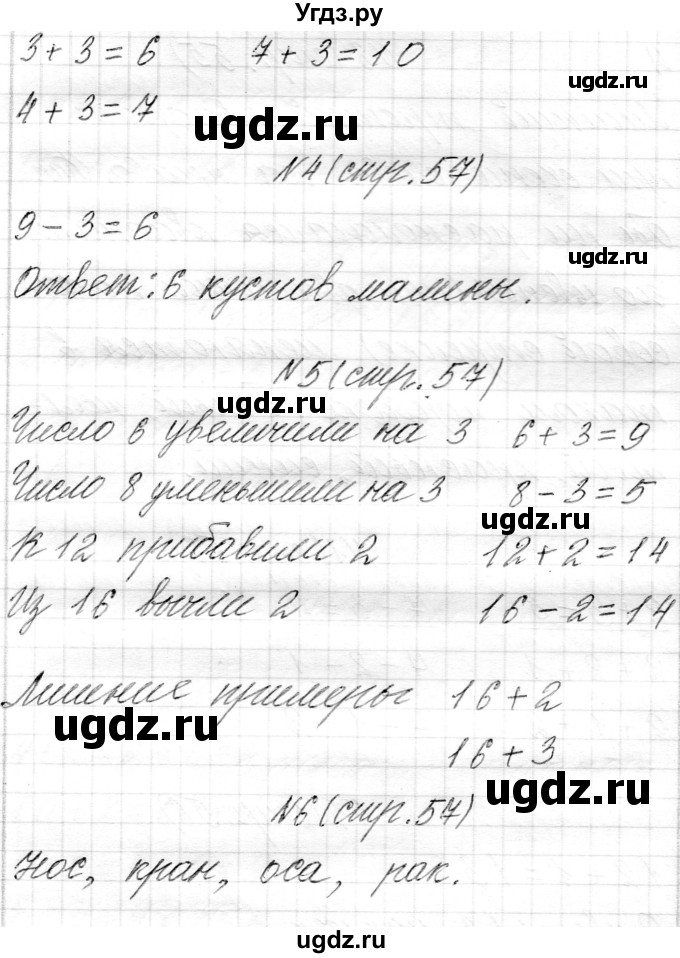 Угдз.ру
3+3=6 7+3=10
ugdz.ru
4+3=7
ugdz.ru
N4(стр.57)
9-3=6
ugdz.ru
Ответ: 6 кустов малины.
N5(стр.57)
ugdz.ru
Число 6 увеличили на 3 6+3=9
Число 8 уменьшили на 3 8-3=5
ugdz.ru
К 12 прибавили 2 12+2=14
Из 16 вычли 2 16-2=14
Лишние примеры 16+2
ugdz.ru
16+3
ugdz.ru
N6(стр.57)
Нос, кран, оса, рак.
ugdz.ru